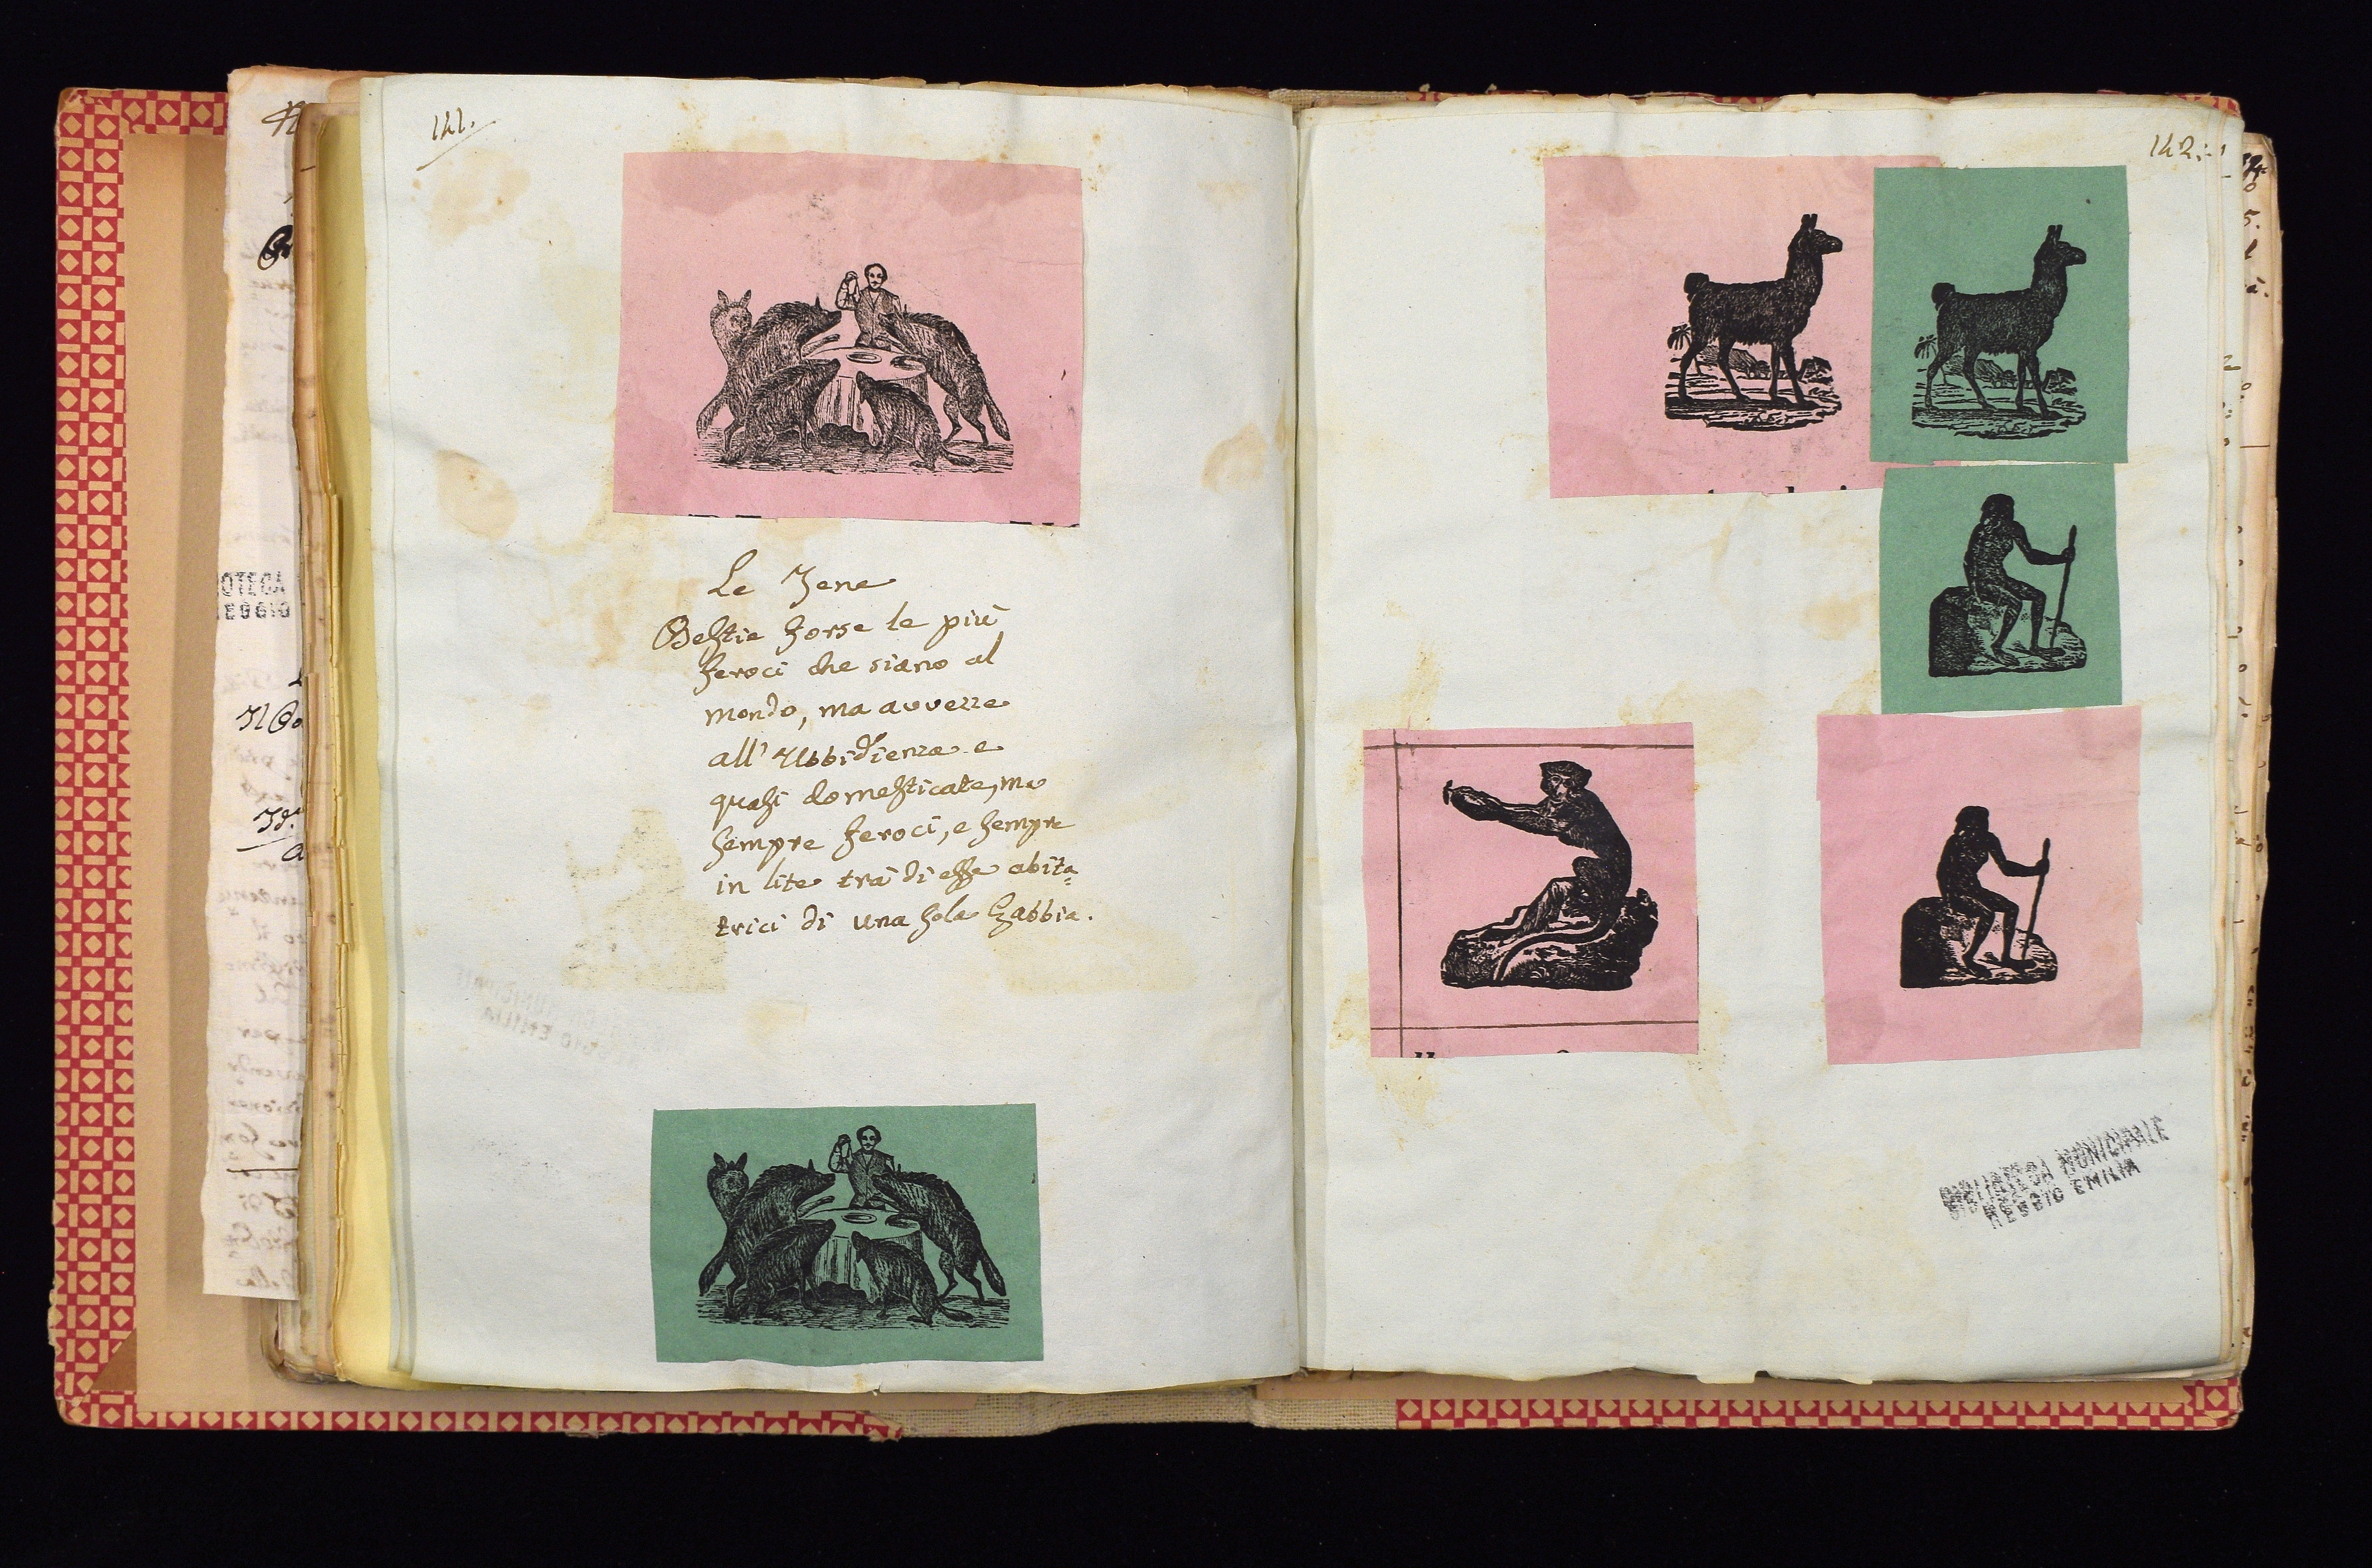 141.
Le Jene
Bestie forse le più
feroci che siano al
mondo, ma avvezze
all' Ubbidienza e
quasi domesticate, ma
sempre feroci, e sempre
in lite trai di esse abita=
trici di una sola Gabbia.
142.
BIBLIOTECA MUNICIPALE
REGGIO EMILIA
OTECA
EGGIO